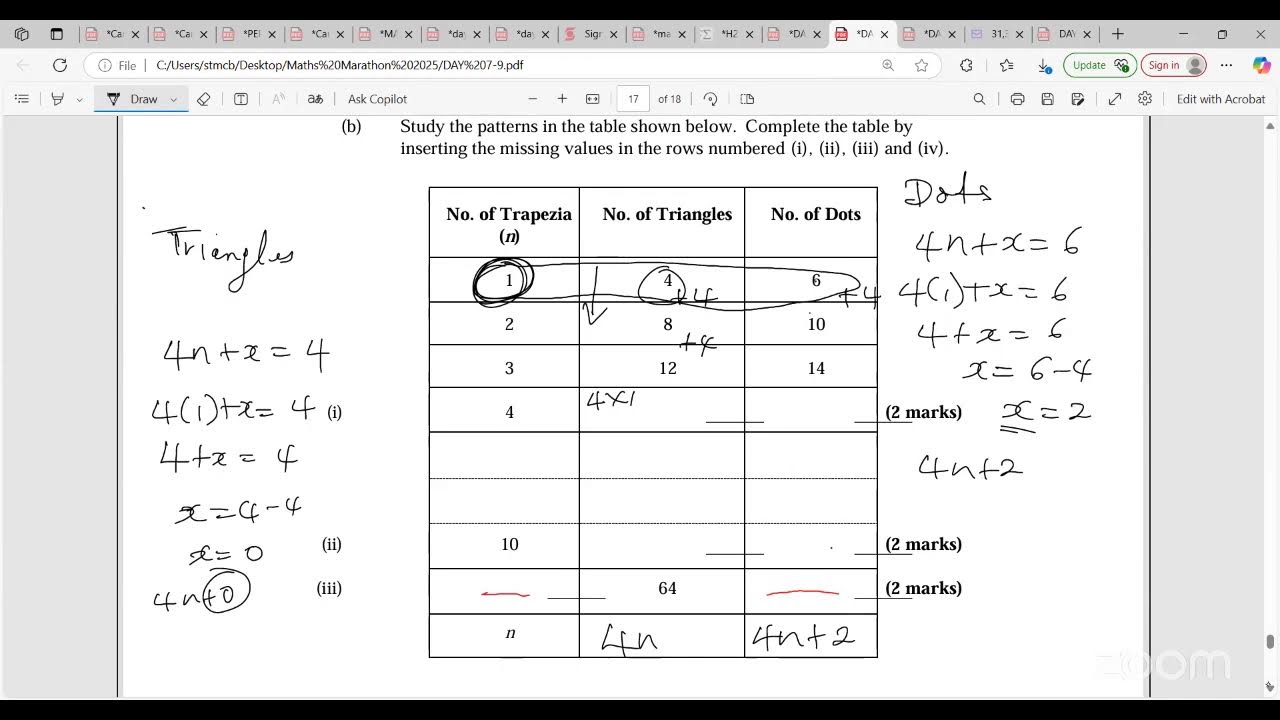 *Ca
*Ca
*PE
*Ca
*M
*day
*day
Sign
*ma
*H2
*DA
*DA
*DA
31,
DAY
File
C:/Users/stmcb/Desktop/Maths%20Marathon%202025/DAY%207-9.pdf
Update
Sign in
Draw
Ask Copilot
17 of 18
Edit with Acrobat
(b) Study the patterns in the table shown below. Complete the table by
inserting the missing values in the rows numbered (i), (ii), (iii) and (iv).
No. of Trapezia (n) No. of Triangles No. of Dots
1 4 +4 6 +4
2 8 +4 10
3 12 14
(i) 4 4×1 (2 marks)
(ii) 10 (2 marks)
(iii) 64 (2 marks)
n 4n 4n+2
Triangles
4n+x=4
4(1)+x=4
4+x=4
x=4-4
x=0
4n+0
Dots
4n+x=6
4(1)+x=6
4+x=6
x=6-4
x=2
4n+2
zoom